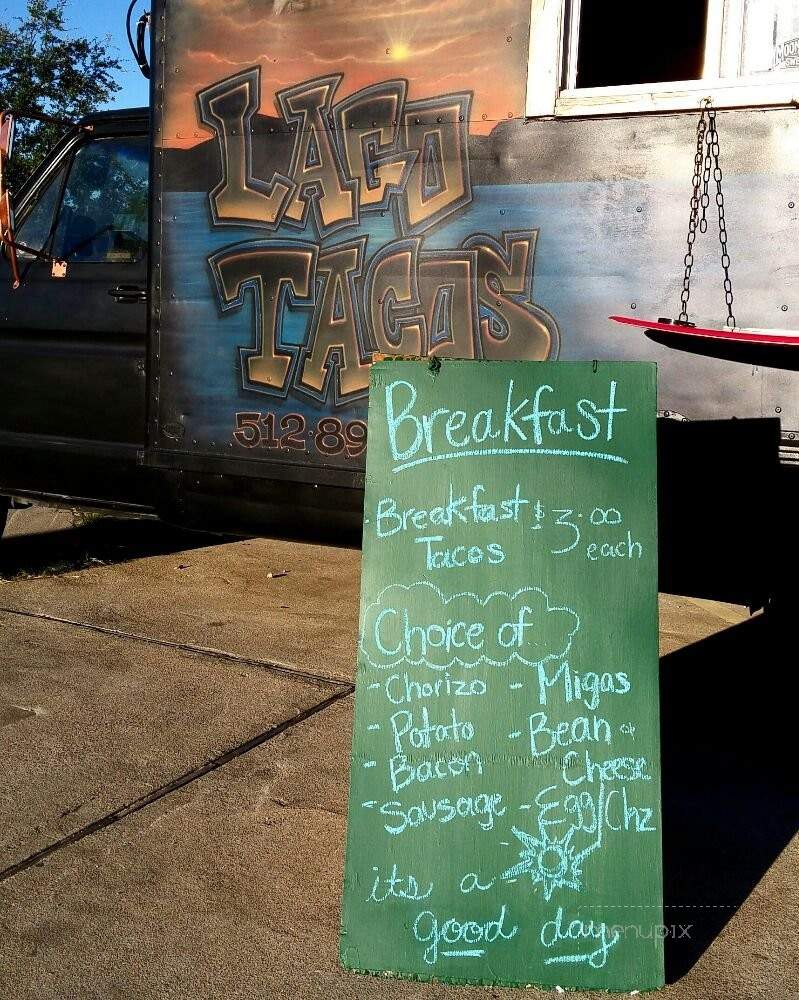 LAGO
TACOS
512·89
MOON
Breakfast
Breakfast $3.00
Tacos each
Choice of
- Chorizo - Migas
- Potato - Bean &
- Bacon Cheese
- Sausage - Egg/Chz
its a
good day
menupix